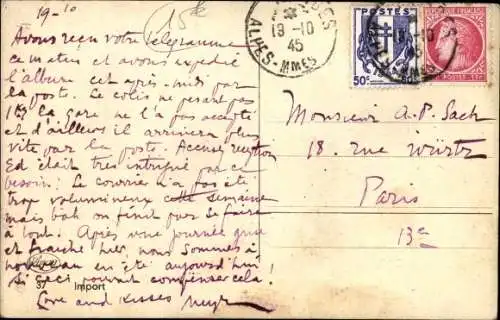 19-10
Avons reçu votre télégramme
ce matin et avons expédié
l'album cet après-midi par
la poste. Le colis ne pesant pas
la gare ne l'a pas accepté
et d'ailleurs il arrivera plus
vite par la poste. Accusez
Ed était très intrigué par ce
besoin! Le courrier n'a pas été
trop volumineux cette semaine
mais bah on finit par se faire
à tout. Après une journée grise
et fraîche hier, nous sommes à
nouveau en été aujourd'hui!
Si ceci pouvait compenser cela.
Love and Kisses
37 Import
19-10
45
ALPES-MMES
POSTES
50c
Monsieur A-P. Sach
18. rue Wurtz
Paris
13e